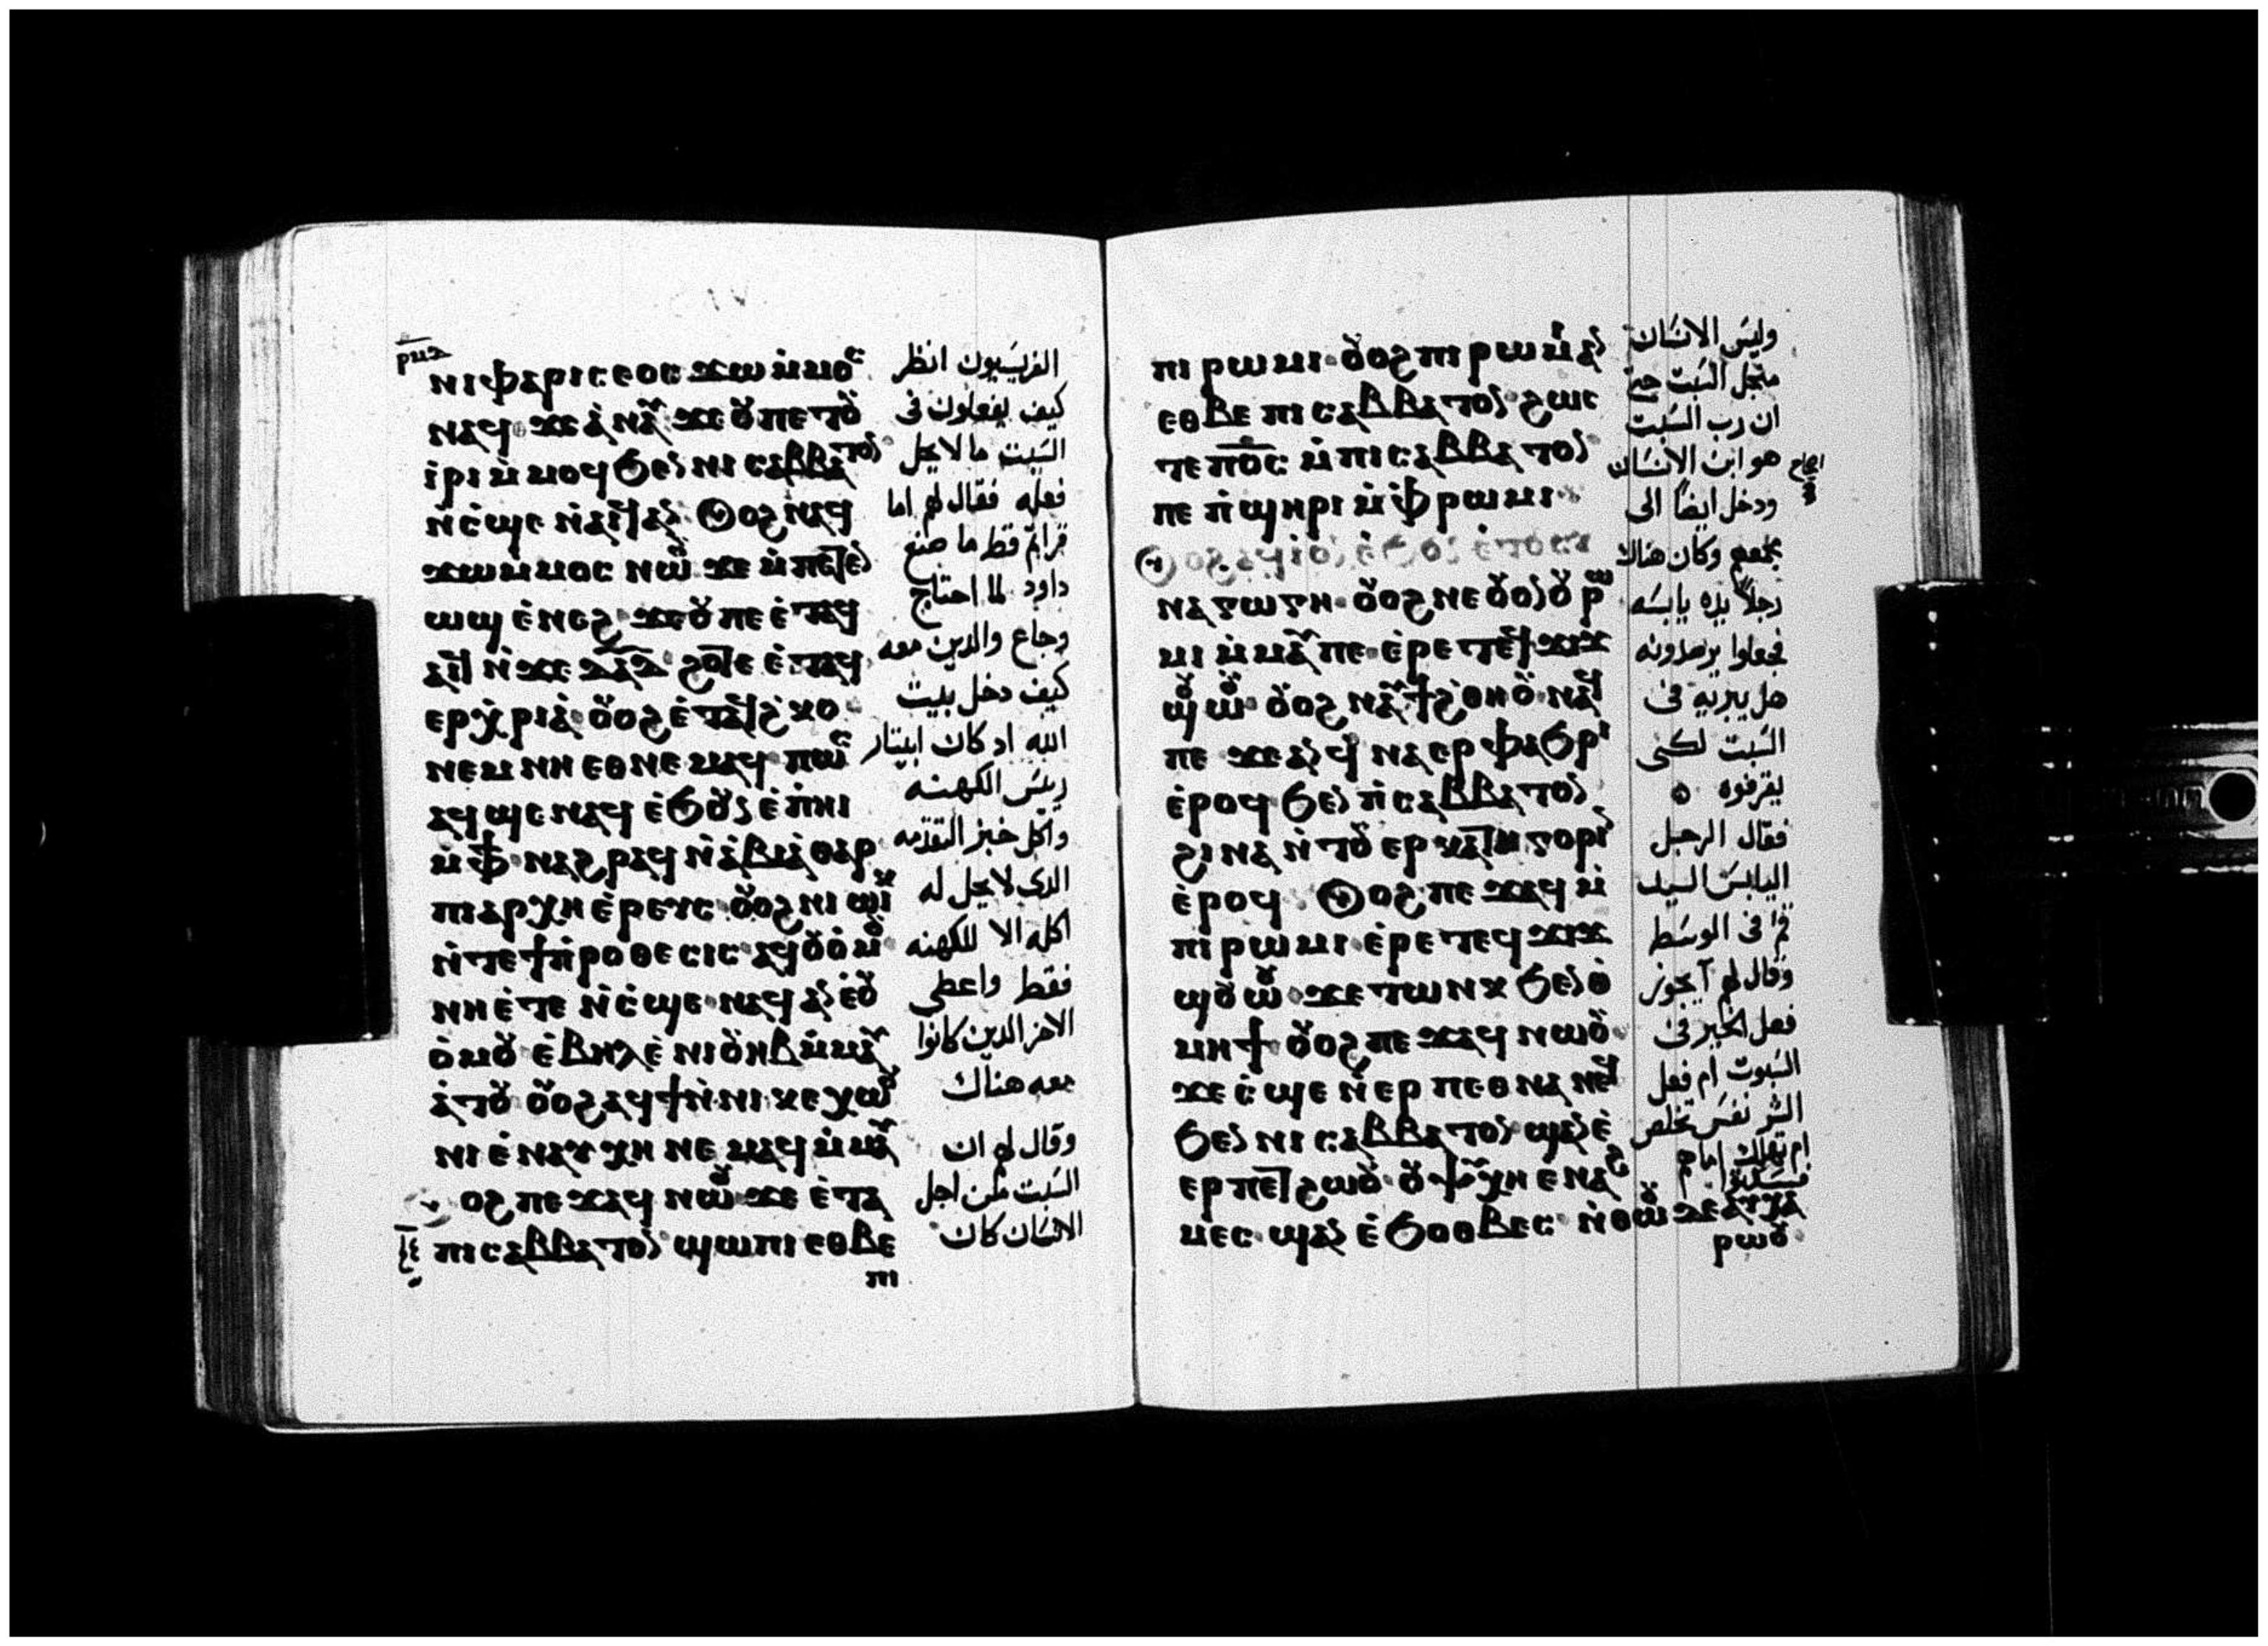 ⲛⲓⲫⲁⲣⲓⲥⲉⲟⲥ ϫⲱ ⲙ̇ⲙⲟⲥ
ⲛⲁϥ ϫⲉ ⲁ̇ⲛⲁⲩ ϫⲉ ⲟⲩ ⲡⲉⲧⲟⲩ
ⲓ̇ⲣⲓ ⲙ̇ⲙⲟϥ ϧⲉⲛ ⲛⲓⲥⲁⲃⲃⲁⲧⲟⲛ
ⲛ̇ⲥ̇ϣⲉ ⲛ̇ⲁⲓϥ ⲁⲛ ⲟⲩⲟϩ ⲛⲁϥ
ϫⲱⲙⲙⲟⲥ ⲛⲱⲟⲩ ϫⲉ ⲙ̇ⲡⲉⲧⲉⲛ
ⲱϣ ⲉ̇ⲛⲉϩ ϫⲉ ⲟⲩ ⲡⲉ ⲉ̇ⲧⲁϥ
ⲁⲓϥ ⲛ̇ϫⲉ ⲇⲁⲇ ϩⲟⲧⲉ ⲉ̇ⲧⲁϥ
ⲉⲣⲭ̇ⲣⲓⲁ̇ ⲟⲩⲟϩ ⲉ̇ⲧⲁϥϩ̇ⲕⲟ
ⲛⲉⲙ ⲛⲏ ⲉⲑⲛⲉⲙⲁϥ ⲡⲱⲥ
ⲁϥϣⲉ ⲛⲁϥ ⲉ̇ϧⲟⲩⲛ ⲉ̇ⲡ̇ⲏⲓ
ⲙ̇ⲫϯ ⲛⲁϩⲣⲁϥ ⲛ̇ⲁ̇ⲃⲓⲁ̇ⲑⲁⲣ
ⲡⲓⲁⲣⲭⲏⲉ̇ⲣⲉⲩⲥ ⲟⲩⲟϩ ⲛⲓⲱⲓⲕ
ⲛ̇ⲧⲉ ϯⲡ̇ⲣⲟⲑⲉⲥⲓⲥ ⲁϥⲟⲩⲟ̇ⲙⲟⲩ
ⲛⲏ ⲉ̇ⲧⲉ ⲛ̇ⲥ̇ϣⲉ ⲛⲁϥ ⲁⲛ ⲉ̇ⲟⲩ
ⲟ̇ⲙⲟⲩ ⲉ̇ⲃⲏⲗ ⲉ̇ⲛⲓⲟⲩⲏⲃ ⲙ̇ⲙⲁⲩ
ⲁ̇ⲧⲟⲩ ⲟⲩⲟϩ ⲁϥϯ ⲛ̇ⲛⲓⲕⲉⲭⲱⲟⲩ
ⲛⲓ ⲉ̇ⲛⲁⲩⲭⲏ ⲛⲉⲙⲁϥ ⲙ̇ⲙⲁⲩ
ⲟⲩⲟϩ ⲡⲉϫⲁϥ ⲛⲱⲟⲩ ϫⲉ ⲉ̇ⲧⲁ
ⲡⲓⲥⲁⲃⲃⲁⲧⲟⲛ ϣⲱⲡⲓ ⲉⲑⲃⲉ
ⲡⲓ
الفريسيون انظر
كيف يفعلون فى
السبت ما لا يحل
فعله فقال لهم اما
قراتم قط ما صنع
داود لما احتاج
وجاع والدين معه
كيف دخل بيت
الله اد كان ابيتار
رييس الكهنه
واكل خبز التقدمه
الدى لا يحل له
اكله الا للكهنه
فقط واعطى
الاخر الدين كانوا
معه هناك
وقال لهم ان
السبت من اجل
الانسان كان
ⲡⲓⲣⲱⲙⲓ ⲟⲩⲟϩ ⲡⲓⲣⲱⲙⲓ ⲁⲛ
ⲉⲑⲃⲉ ⲡⲓⲥⲁⲃⲃⲁⲧⲟⲛ ϩⲱⲥ
ⲧⲉ ⲡⲟ̅ⲥ̅ ⲙ̇ⲡⲓⲥⲁⲃⲃⲁⲧⲟⲛ
ⲡⲉ ⲡ̇ϣⲏⲣⲓ ⲙ̇ⲫ̇ⲣⲱⲙⲓ
ⲟⲩⲟϩ ⲁϥⲓ̇ ⲟⲛ ⲉ̇ϧⲟⲩⲛ ⲉ̇ⲧⲟⲩⲥⲩ
ⲛⲁⲅⲱⲅⲏ ⲟⲩⲟϩ ⲛⲉ ⲟⲩⲟⲛ ⲟⲩⲣⲱ
ⲙⲓ ⲙ̇ⲙⲁⲩ ⲡⲉ ⲉ̇ⲣⲉ ⲧⲉϥϫⲓϫ
ϣⲟⲩⲱⲟⲩ ⲟⲩⲟϩ ⲛⲁⲩϯϩ̇ⲑⲏⲟⲩ ⲛⲁϥ
ⲡⲉ ϫⲉ ⲁⲛ ϥ̇ⲛⲁⲉⲣⲫⲁϧⲣⲓ
ⲉ̇ⲣⲟϥ ϧⲉⲛ ⲡ̇ⲥⲁⲃⲃⲁⲧⲟⲛ
ϩⲓⲛⲁ ⲛ̇ⲧⲟⲩⲉⲣⲕⲁⲧⲏⲅⲟⲣⲓⲛ
ⲉ̇ⲣⲟϥ ⲟⲩⲟϩ ⲡⲉϫⲁϥ ⲙ̇
ⲡⲓⲣⲱⲙⲓ ⲉ̇ⲣⲉ ⲧⲉϥϫⲓϫ
ϣⲟⲩⲱⲟⲩ ϫⲉ ⲧⲱⲛⲕ ϧⲉⲛ ⲑ̇
ⲙⲏϯ ⲟⲩⲟϩ ⲡⲉϫⲁϥ ⲛⲱⲟⲩ
ϫⲉ ⲥ̇ϣⲉ ⲛ̇ⲉⲣ ⲡⲉⲑⲛⲁⲛⲉϥ
ϧⲉⲛ ⲛⲓⲥⲁⲃⲃⲁⲧⲟⲛ ϣⲁⲛ ⲉ̇
ⲉⲣ ⲡⲉⲧϩⲱⲟⲩ ⲟⲩⲯⲩⲭⲏ ⲉⲛⲁϩ
ⲙⲉⲥ ϣⲁⲛ ⲉ̇ϧⲟⲑⲃⲉⲥ ⲛ̇ⲑⲱⲟⲩ ϫⲉ ⲁⲩⲭⲁ
ⲣⲱⲟⲩ
وليس الانسان
من اجل السبت حتى
ان رب السبت
هو ابن الانسان
ودخل ايضا الى
مجمعهم وكان هناك
رجلا يده يابسه
فجعلوا يرصدونه
هل يبريه فى
السبت لكى
يقرفوه
فقال الرجل
اليابس اليد
قم فى الوسط
وقال لهم ايجوز
فعل الخير فى
السبوت ام فعل
الشر نفس تخلص
ام تهلك اما هم
فسكتوا